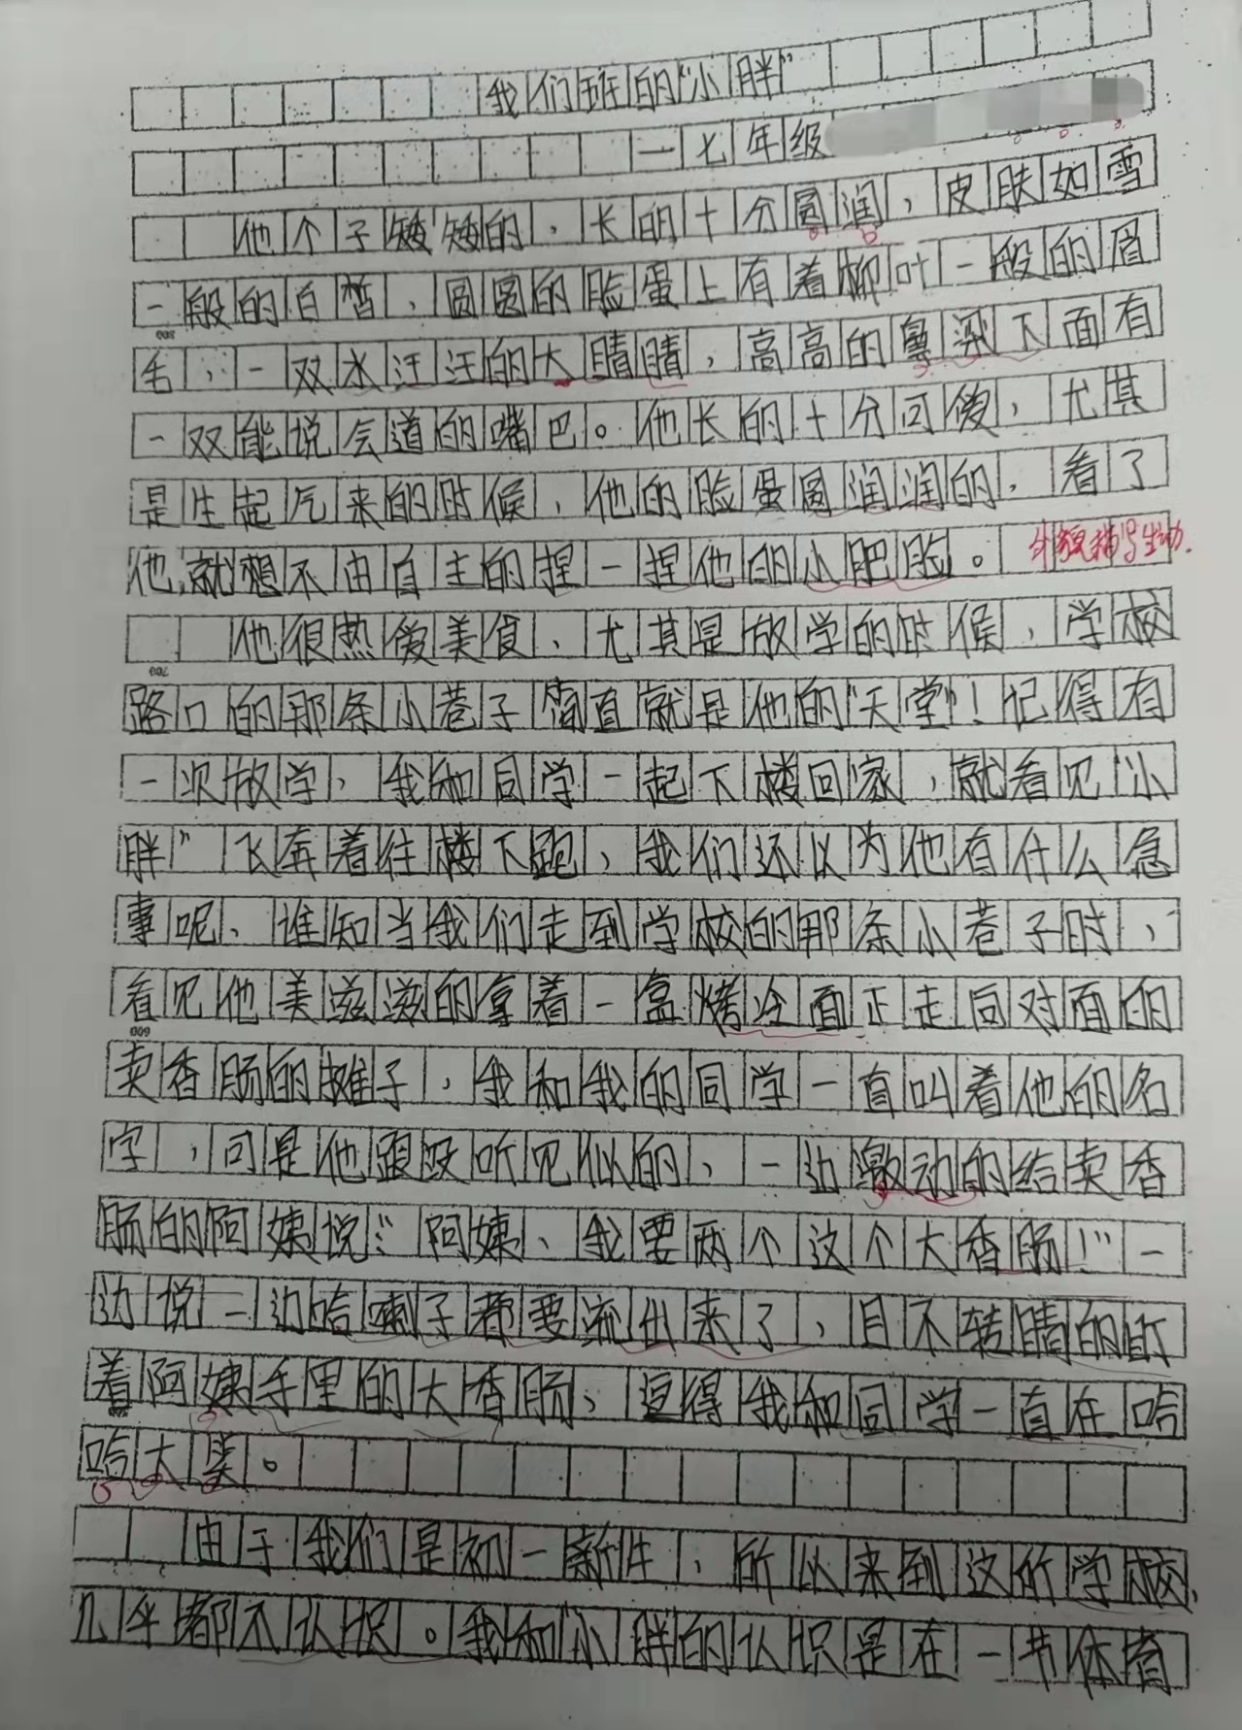 我们班的“小胖”
一七年级
他个子矮矮的，长的十分圆润，皮肤如雪
一般的白皙，圆圆的脸蛋上有着柳叶一般的眉
毛，一双水汪汪的大睛睛，高高的鼻梁下面有
一双能说会道的嘴巴。他长的十分可爱，尤其
是生起气来的时候，他的脸蛋圆润润的，看了
他，就想不由自主的捏一捏他的小肥脸。
外貌描写生动.
他很热爱美食，尤其是放学的时候，学校
路口的那条小巷子简直就是他的“天堂”！记得有
一次放学，我和同学一起下楼回家，就看见“小
胖”飞奔着往楼下跑，我们还以为他有什么急
事呢、谁知当我们走到学校的那条小巷子时，
看见他美滋滋的拿着一盒烤冷面正走向对面的
卖香肠的摊子，我和我的同学一直叫着他的名
字，可是他跟没听见似的，一边激动的给卖香
肠的阿姨说：“阿姨、我要两个这个大香肠！”一
边说一边哈喇子都要流出来了，目不转睛的盯
着阿姨手里的大香肠，逗得我和同学一直在哈
哈大笑。
由于我们是初一新生，所以来到这所学校，
几乎都不认识。我和“小胖的认识是在一节体育